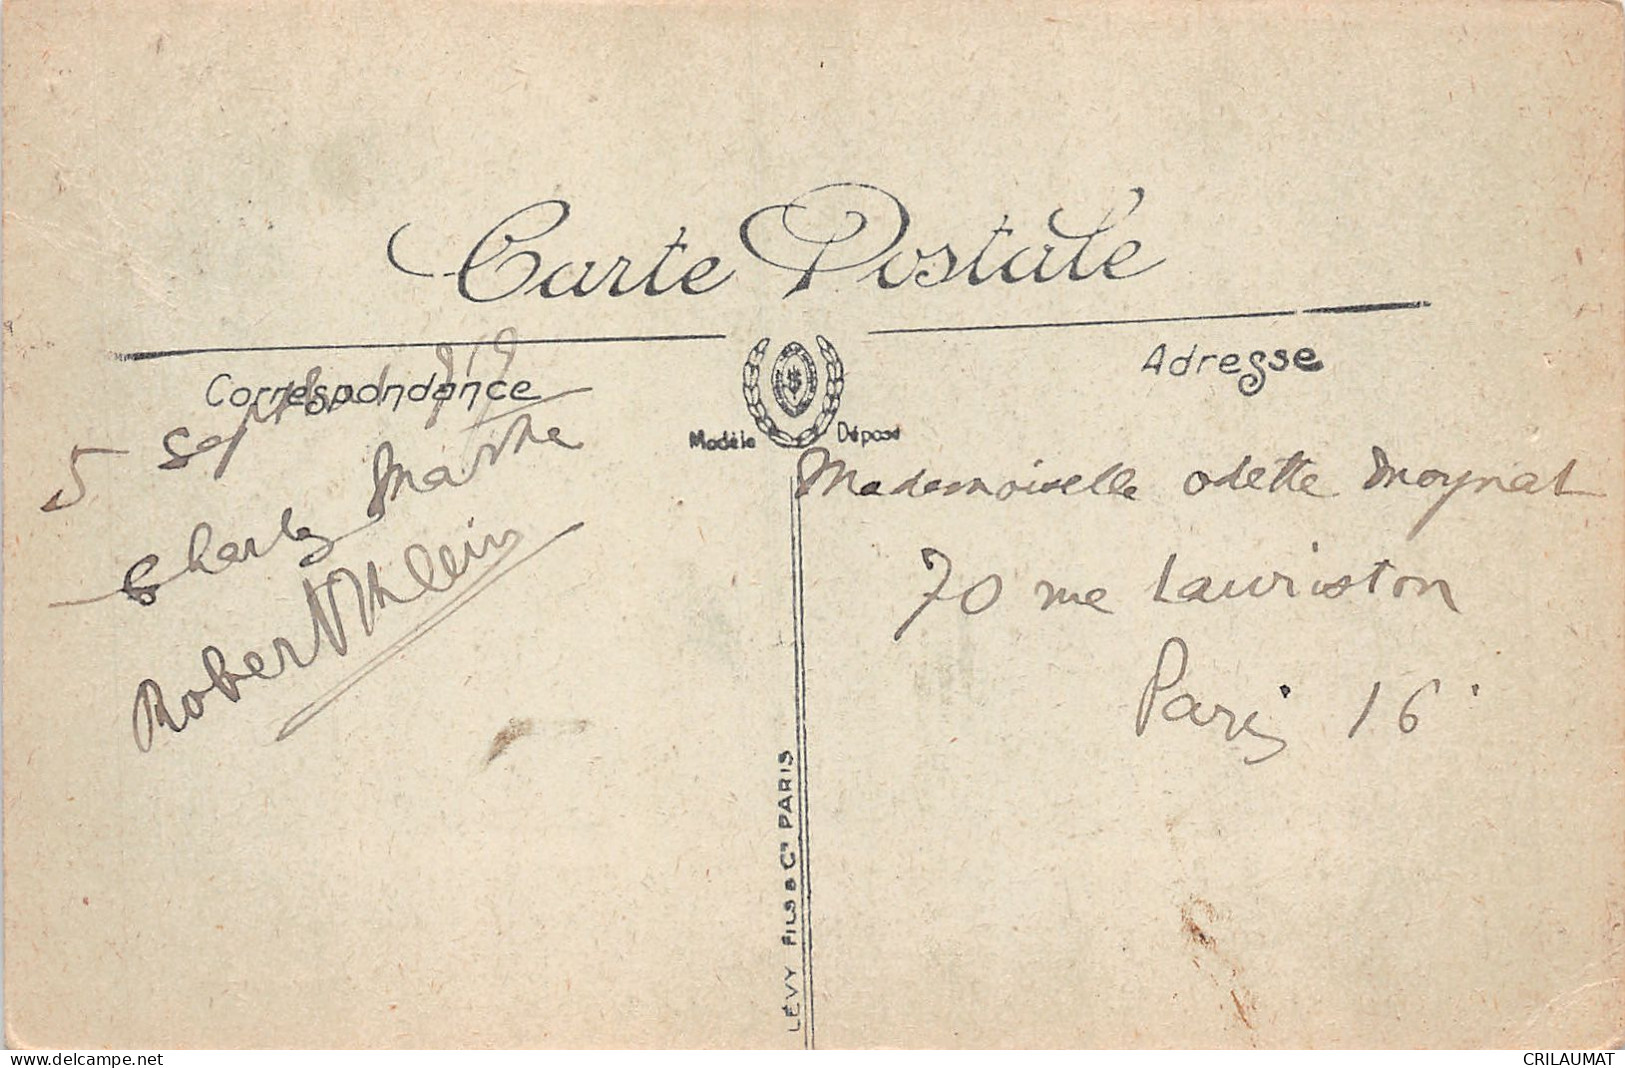 Carte Postale
Correspondance
5 Sept 1919
Charly Marthe
Robert Klein
Modèle Déposé
Adresse
Mademoiselle Odette Moynat
70 rue Lauriston
Paris 16
LÉVY FILS & Cie PARIS
www.delcampe.net
CRILAUMAT